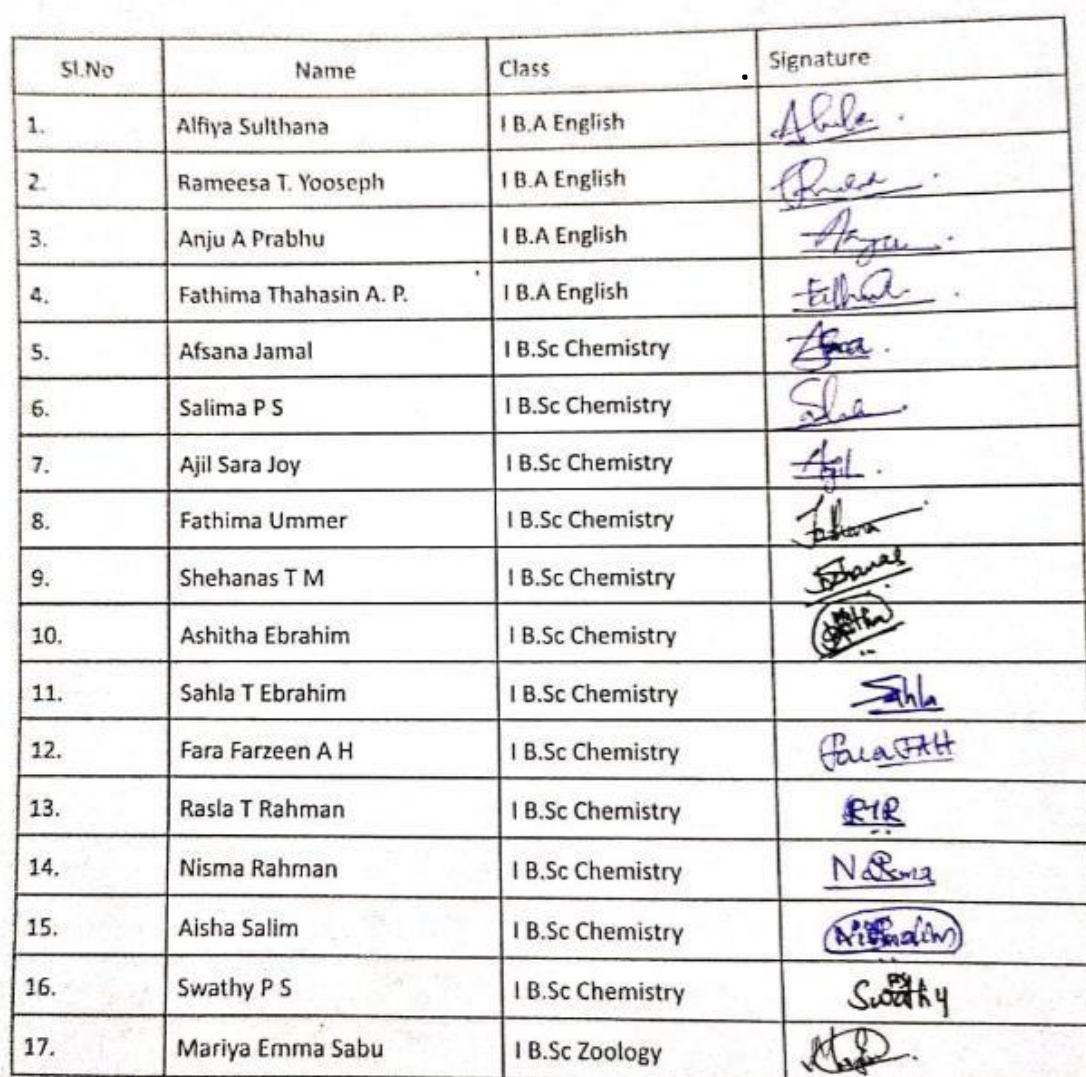 Sl.No Name Class Signature
1. Alfiya Sulthana I B.A English
2. Rameesa T. Yooseph I B.A English
3. Anju A Prabhu I B.A English
4. Fathima Thahasin A. P. I B.A English
5. Afsana Jamal I B.Sc Chemistry
6. Salima P S I B.Sc Chemistry
7. Ajil Sara Joy I B.Sc Chemistry Ajil
8. Fathima Ummer I B.Sc Chemistry
9. Shehanas T M I B.Sc Chemistry
10. Ashitha Ebrahim I B.Sc Chemistry
11. Sahla T Ebrahim I B.Sc Chemistry Sahla
12. Fara Farzeen A H I B.Sc Chemistry
13. Rasla T Rahman I B.Sc Chemistry RTR
14. Nisma Rahman I B.Sc Chemistry
15. Aisha Salim I B.Sc Chemistry
16. Swathy P S I B.Sc Chemistry Swathy
17. Mariya Emma Sabu I B.Sc Zoology